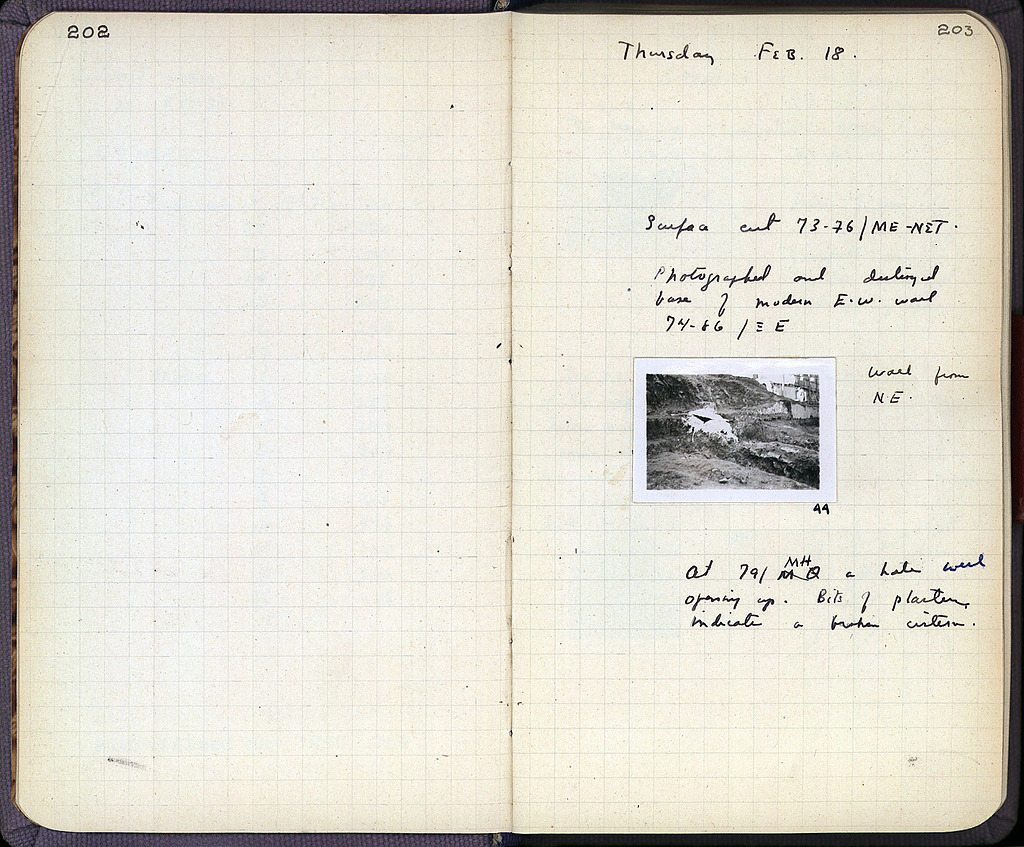 202
203
Thursday FEB. 18.
Surface cut 73-76/ME-NET.
Photographed and destroyed
base of modern E.W. wall
74-86 / E
wall from
N.E.
44
At 79/ MH a hole
opening up. Bits of plaster
indicate a broken cistern.